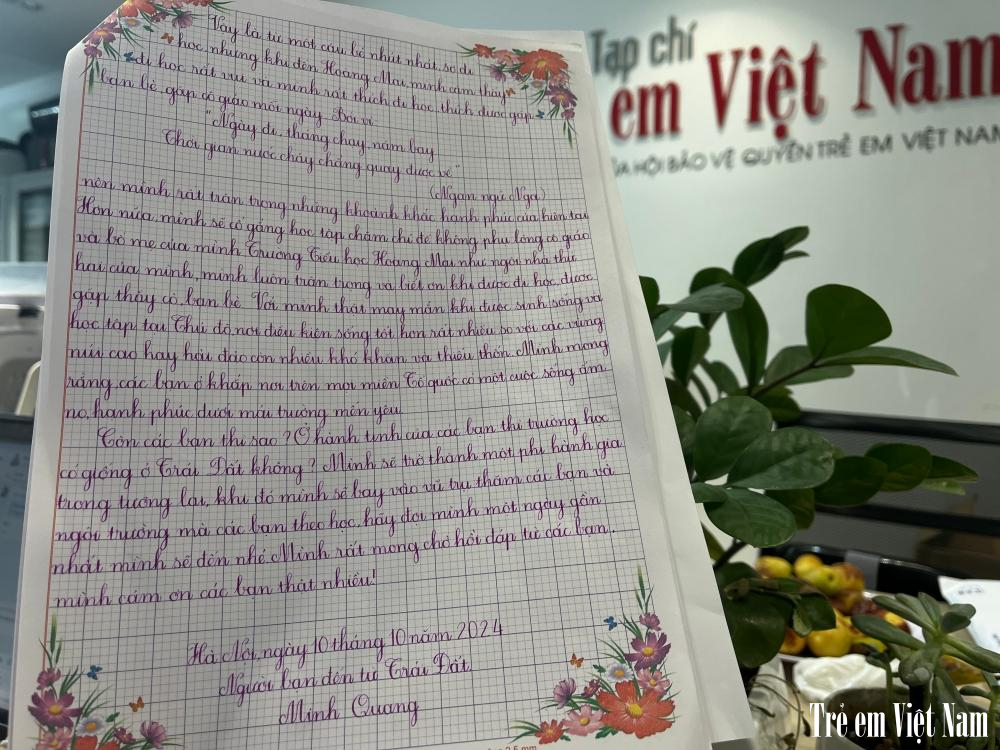 Vậy là, từ một cậu bé nhút nhát, sợ đi
học, nhưng khi đến Hoàng Mai, mình cảm thấy
đi học rất vui và mình rất thích đi học, thích được gặp
bạn bè, gặp cô giáo mỗi ngày. Bởi vì
"Ngày đi, tháng chạy, năm bay
Thời gian nước chảy chẳng quay được về"
(Ngạn ngữ Nga)
nên mình rất trân trọng những khoảnh khắc hạnh phúc của hiện tại
Hơn nữa, mình sẽ cố gắng học tập chăm chỉ để không phụ lòng cô giáo
và bố mẹ của mình Trường Tiểu học Hoàng Mai như ngôi nhà thứ
hai của mình, mình luôn trân trọng và biết ơn khi được đi học, được
gặp thầy cô, bạn bè. Với mình thật may mắn khi được sinh sống và
học tập tại Thủ đô, nơi điều kiện sống tốt hơn rất nhiều so với các vùng
núi cao hay hải đảo còn nhiều khó khăn và thiếu thốn. Mình mong
rằng, các bạn ở khắp nơi trên mọi miền Tổ quốc có một cuộc sống ấm
no, hạnh phúc dưới mái trường mến yêu.
Còn các bạn thì sao? Ở hành tinh của các bạn thì trường học
có giống ở Trái Đất không? Mình sẽ trở thành một phi hành gia
trong tương lai, khi đó mình sẽ bay vào vũ trụ thăm các bạn và
ngôi trường mà các bạn theo học, hãy đợi mình một ngày gần
nhất mình sẽ đến nhé. Mình rất mong chờ hồi đáp từ các bạn,
mình cảm ơn các bạn thật nhiều!
Hà Nội, ngày 10 tháng 10 năm 2024
Người bạn đến từ Trái Đất
Minh Quang
2.5 mm
Tạp chí
em Việt Nam
HỘI BẢO VỆ QUYỀN TRẺ EM VIỆT NAM
Trẻ em Việt Nam